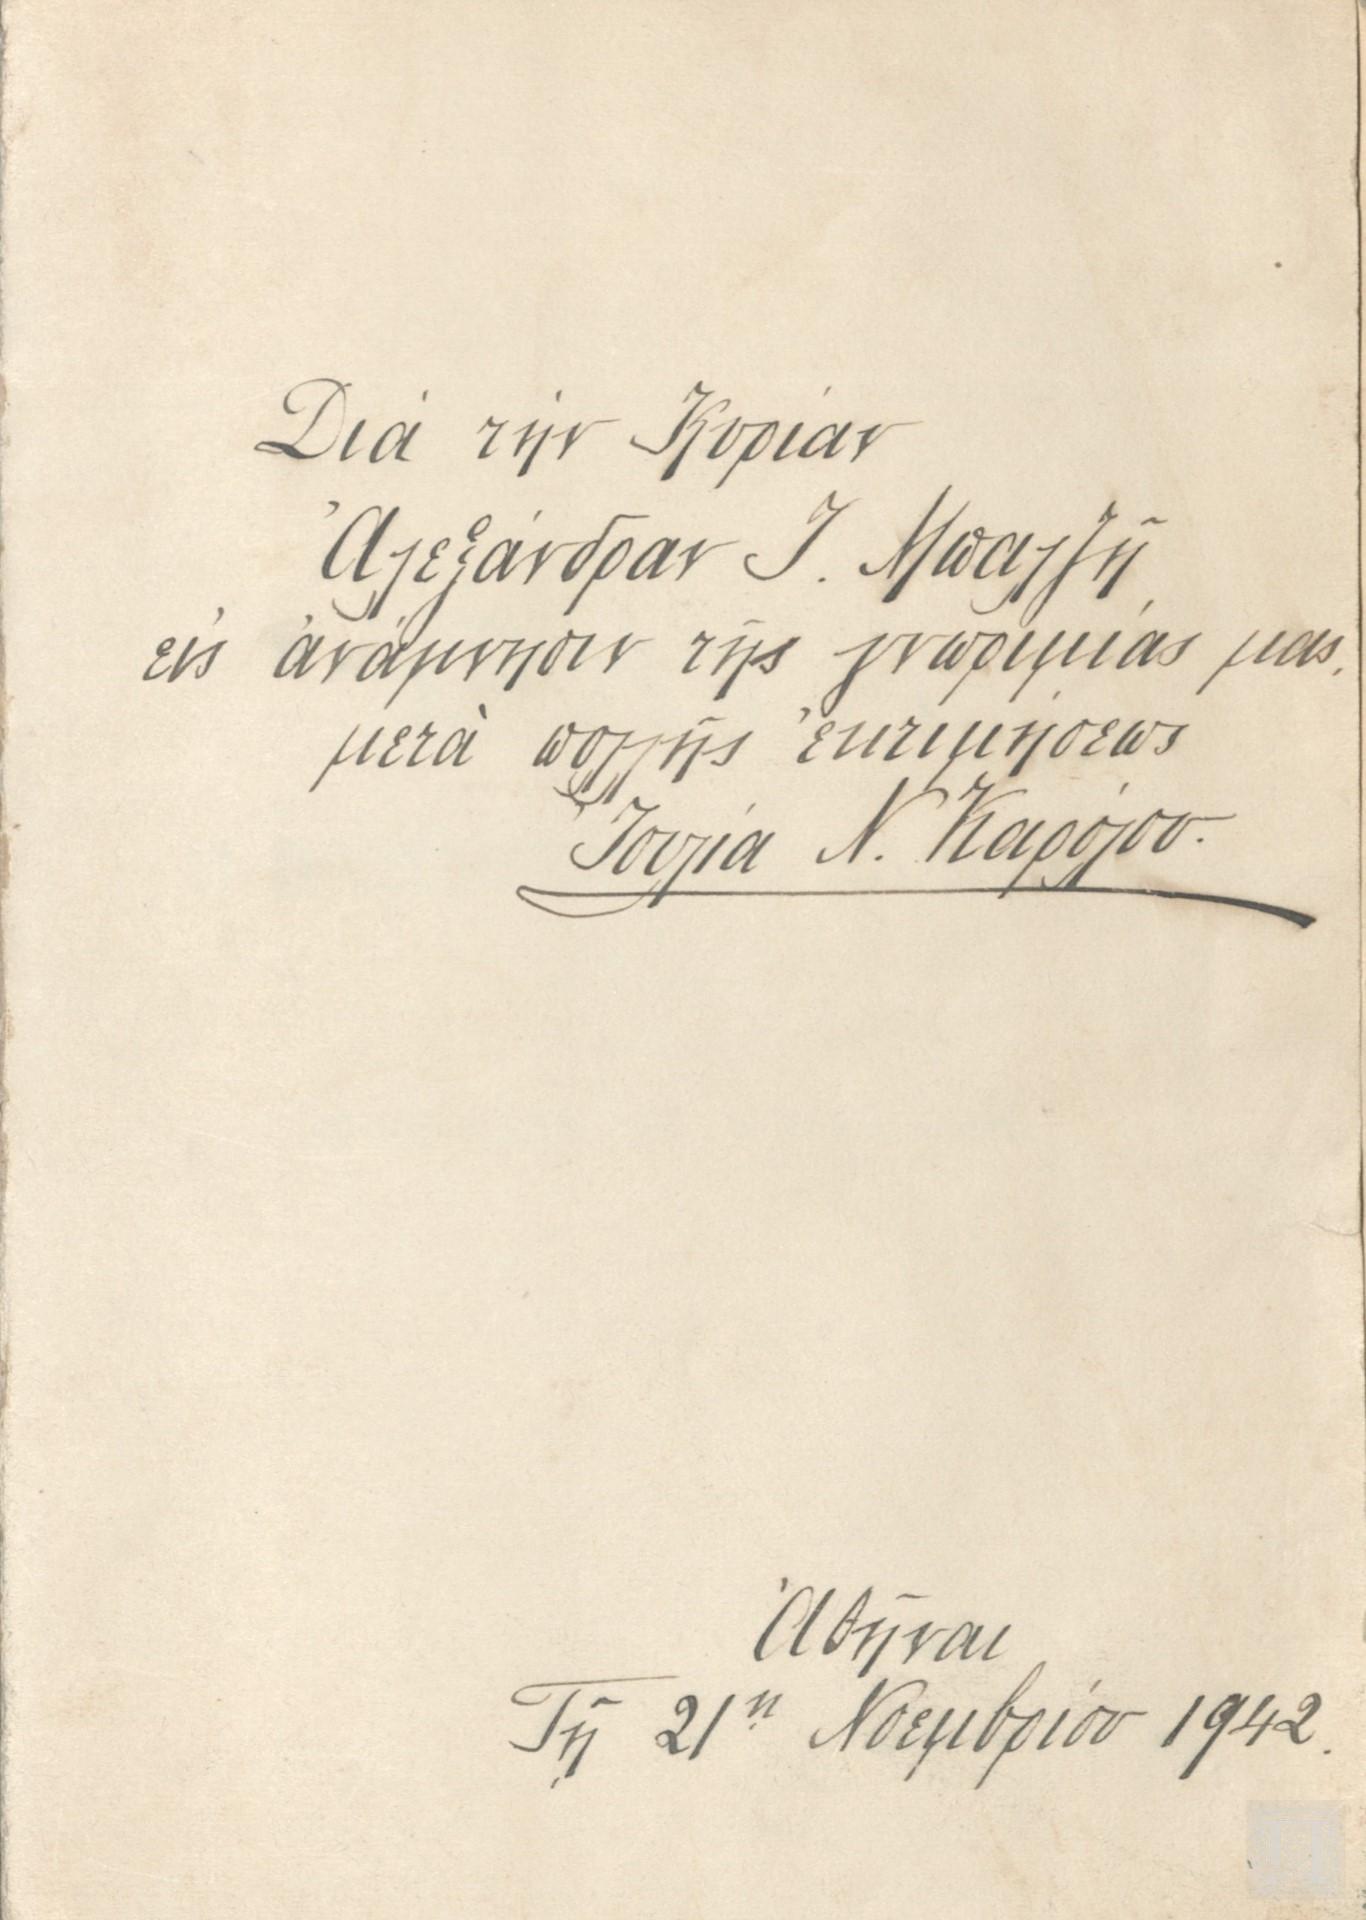 Διά τήν Κυρίαν
Ἀλεξάνδραν Ι. Μπαλτζῆ
εἰς ἀνάμνησιν τῆς γνωριμίας μας,
μετὰ πολλῆς ἐκτιμήσεως
Ἰουλία Ν. Καρόλου.
Ἀθῆναι
Τῇ 21ῃ Νοεμβρίου 1942.